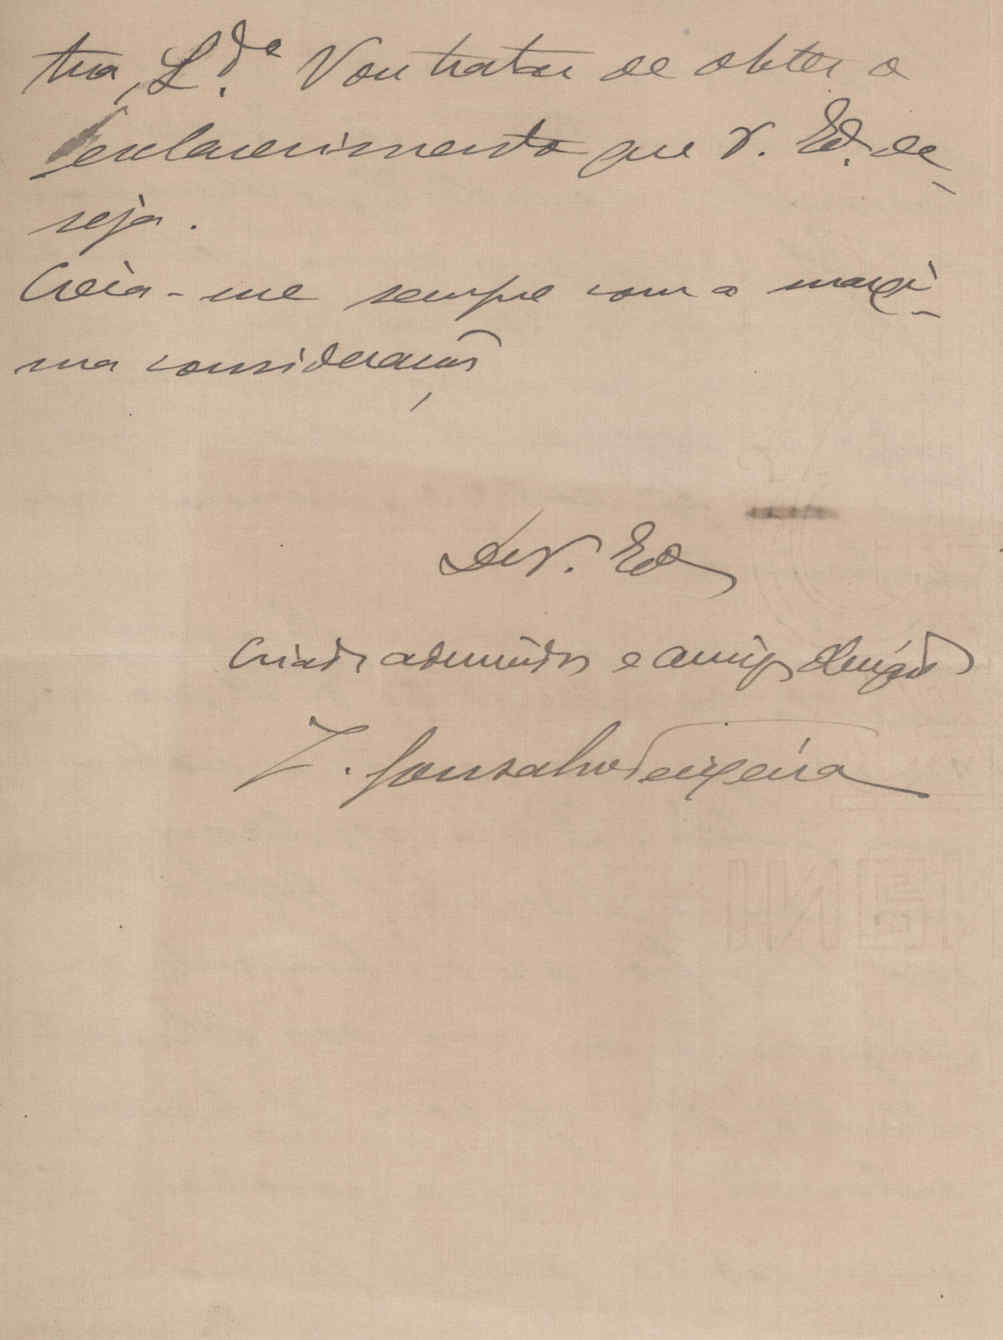 tra, L.da Vou tratar de obter o
esclarecimento que V. Ex. de-
seja.
Creia-me sempre com a maxi-
ma consideração
De V. Ex
Criado admirador e amigo obrigado
F. Gonsalves Teixeira